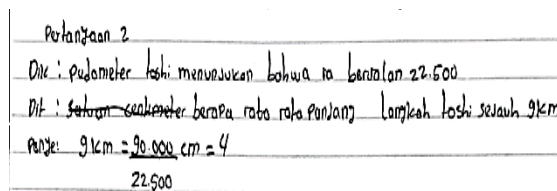 Pertanyaan 2
Dik : pedometer toshi menunjukan bahwa ia berjalan 22.500
Dit : satuan sentimeter berapa rata rata panjang langkah toshi sejauh 9km
Penye: 9km = 90.000 cm = 4
22.500